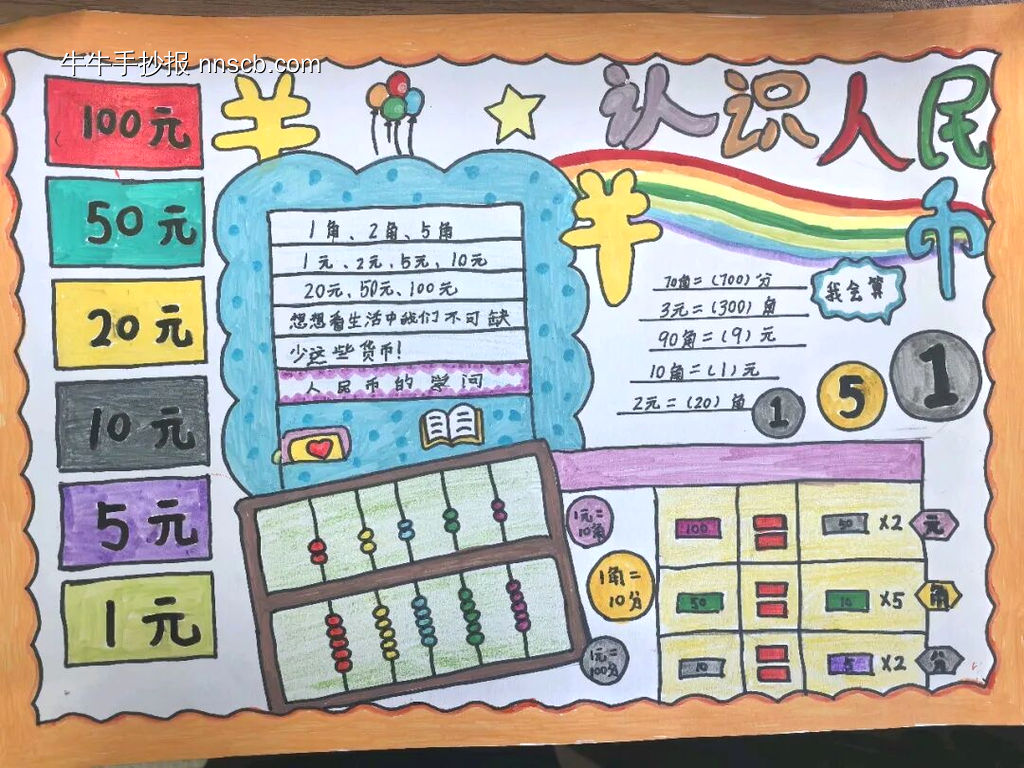 牛牛手抄报 nnscb.com
认识人民币
100元
50元
20元
10元
5元
1元
1角、2角、5角
1元、2元、5元、10元
20元、50元、100元
想想看生活中我们不可缺
少这些货币!
人民币的学问
我会算
70角=(700)分
3元=(300)角
90角=(9)元
10角=(1)元
2元=(20)角
1
5
1
1元=
10角
1角=
10分
1元=
100分
100 = 50 ×2
50 = 10 ×5
10 = 5 ×2
元
角
分